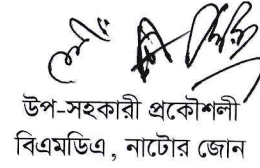 উপ-সহকারী প্রকৌশলী
বিএমডিএ, নাটোর জোন